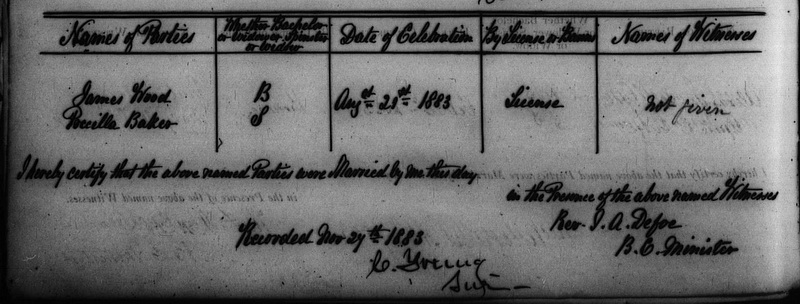 Names of Parties
Whether Bachelor or Widower Spinster or Widow
Date of Celebration
By License or Banns
Names of Witnesses
James Wood
B
Augst 21st 1883
License
not given
Porcilla Baker
S
I hereby certify that the above named Parties were Married by me this day
in the Presence of the above named Witnesses
Rev. I. A. Defoe
B.C. Minister
Recorded Nov 27th 1883
C. Young